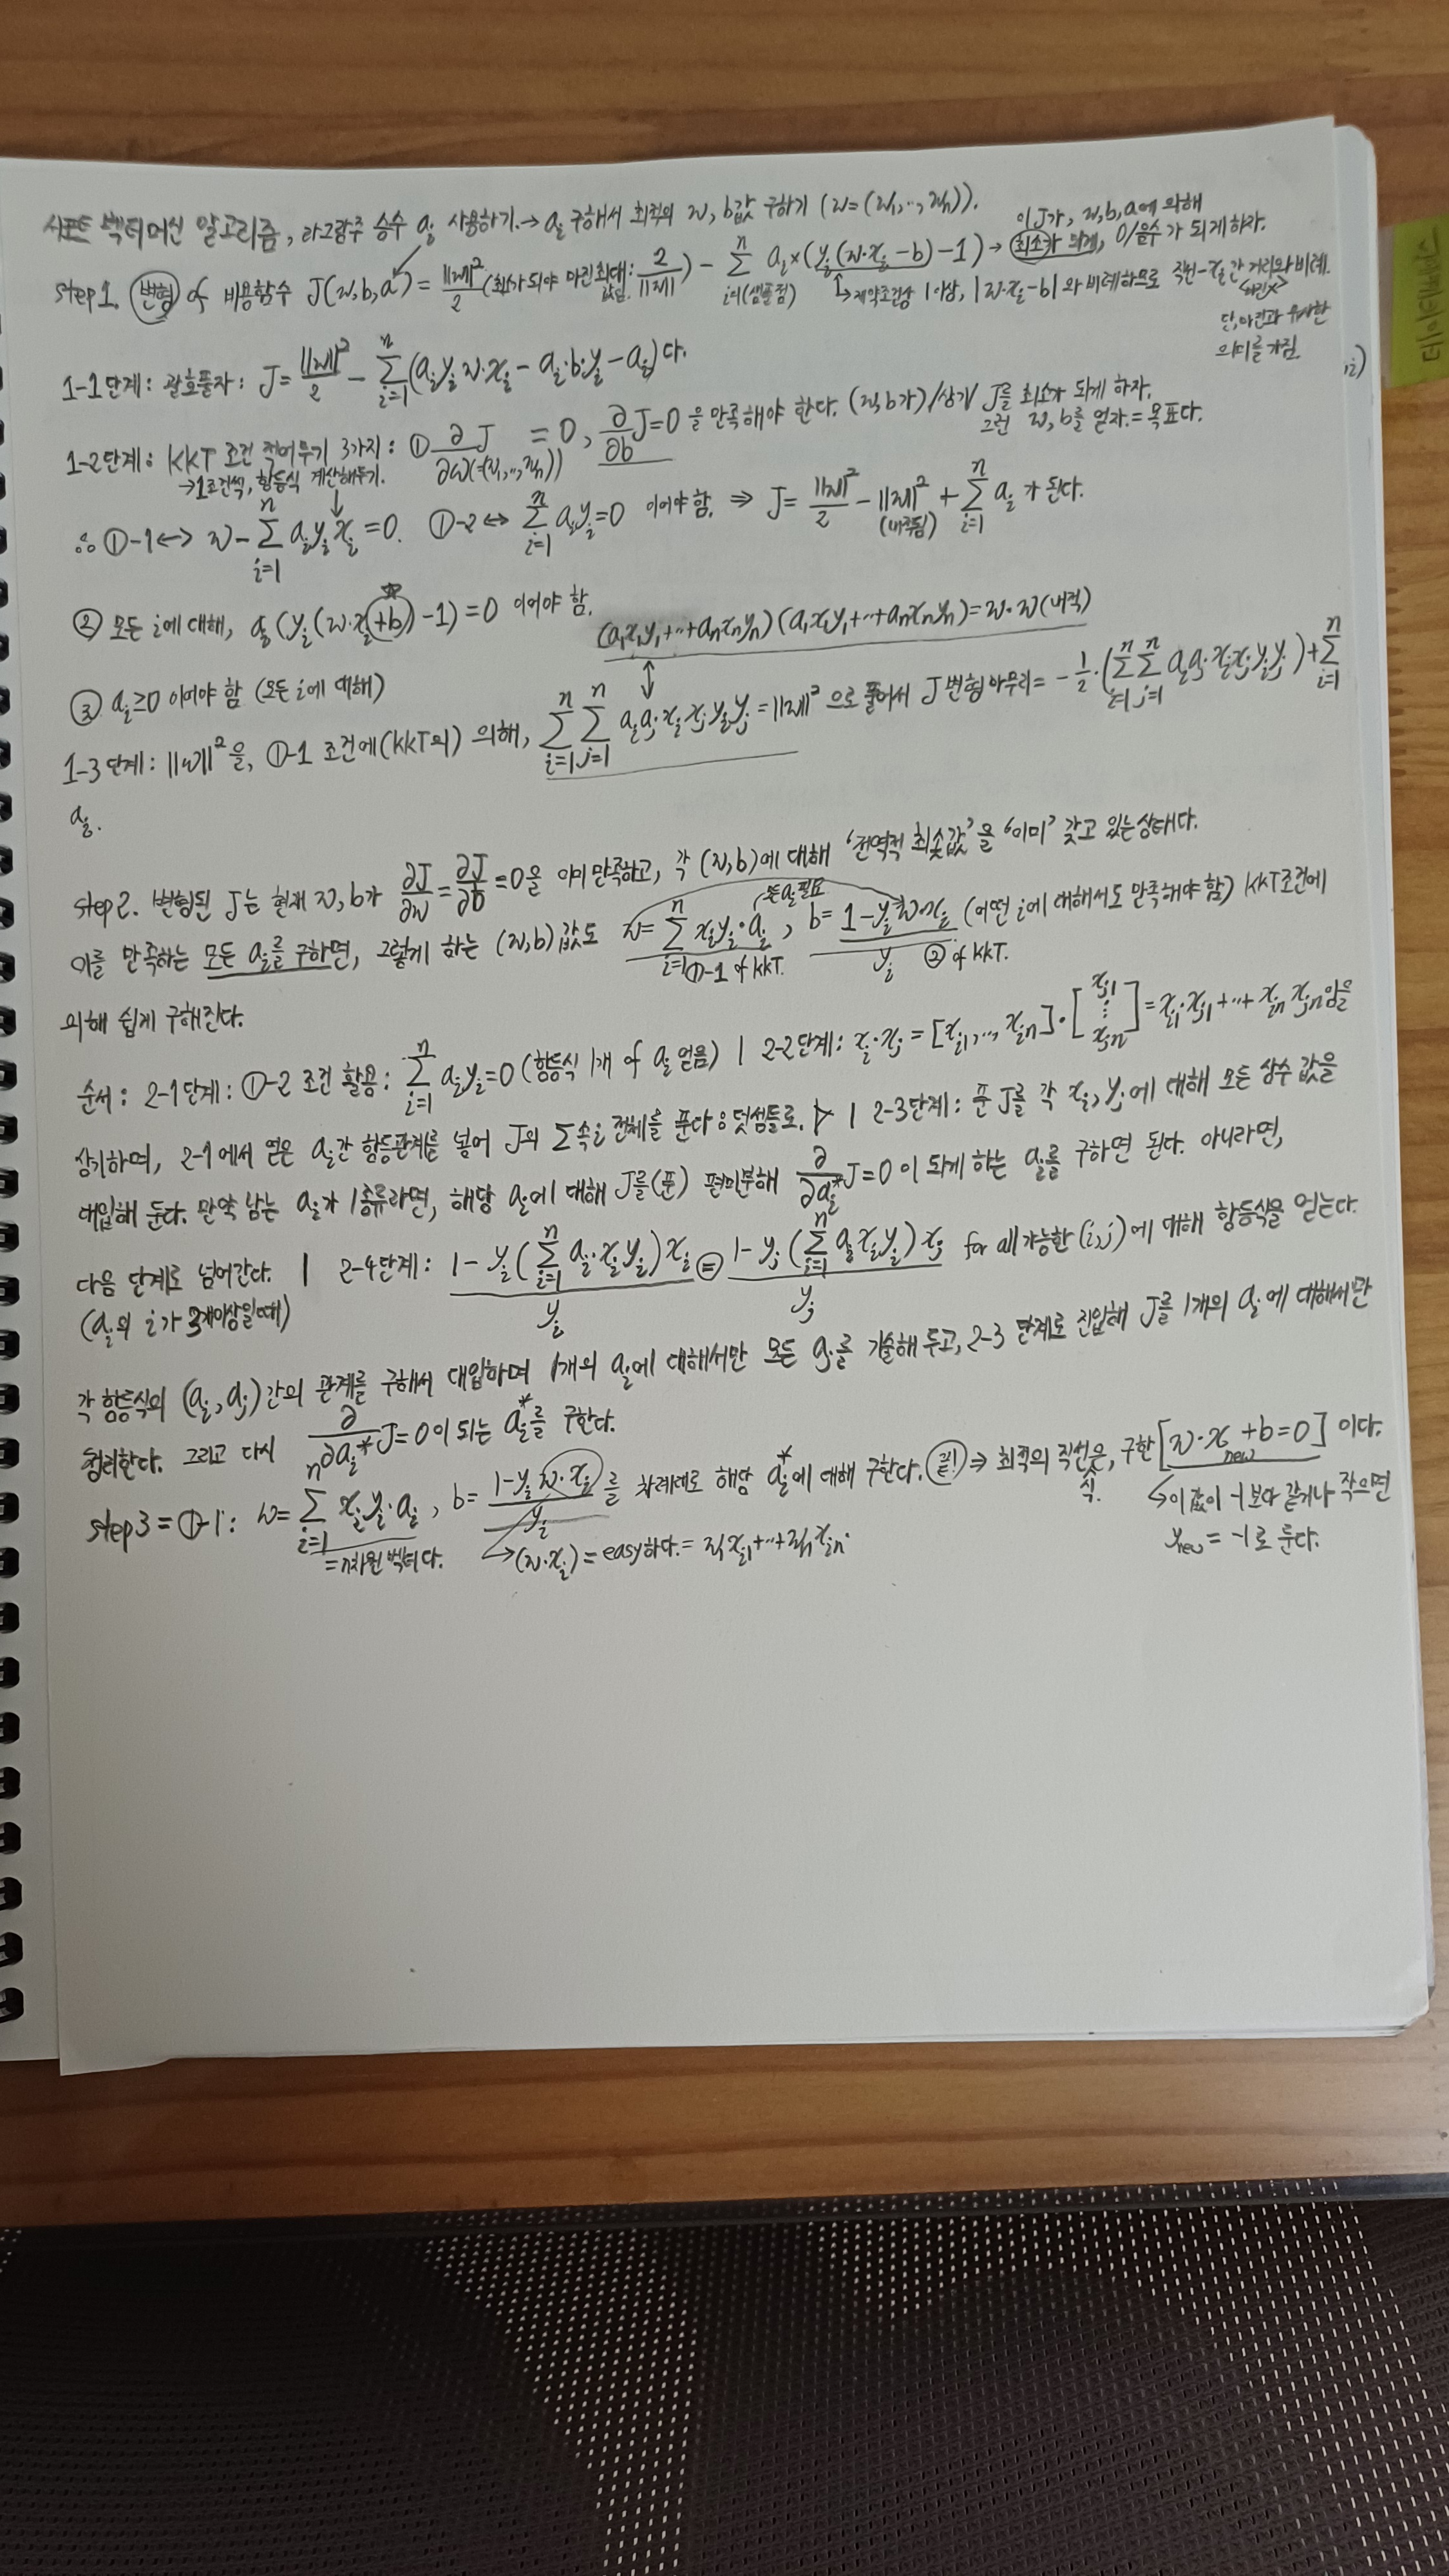 서포트 벡터머신 알고리즘, 라그랑주 승수 aᵢ 사용하기.→ aᵢ 구해서 최적의 w, b값 구하기 (w=(w₁,..,wₙ)).
이 J가, w,b,a에 의해
최소가 되게, 0/음수가 되게 하자.
step1. 변형 of 비용함수 J(w,b,a) = ||w||²/2 (최소가 되야 마진최대: 2/||w||) - Σᵢ₌₁ⁿ aᵢ×(yᵢ(w·xᵢ-b)-1)→
i=1(샘플점) ↳제약조건상 1이상, |w·xᵢ-b|와 비례하므로 직선-xᵢ간 거리와 비례.
단, 마진과 유사한
의미를 가짐.
1-1단계: 괄호풀자: J= ||w||²/2 - Σᵢ₌₁ⁿ(aᵢyᵢw·xᵢ - aᵢ·b·yᵢ - aᵢ)다.
1-2단계: KKT 조건 적어두기 3가지: ① ∂J/∂w(=(w₁,..,wₙ)) = 0, ∂/∂b J=0 을 만족해야 한다. (w,b가)/상기/ J를 최소가 되게 하자.
그런 w,b를 얻자.=목표다.
→1조건씩, 항등식 계산해두기.
∴ ①-1↔ w-Σᵢ₌₁ⁿ aᵢyᵢxᵢ=0. ①-2↔ Σᵢ₌₁ⁿ aᵢyᵢ=0 이어야 함. ⇒ J= ||w||²/2 - ||w||² + Σᵢ₌₁ⁿ aᵢ가 된다.
② 모든 i에 대해, aᵢ(yᵢ(w·xᵢ+b)-1)=0 이어야 함.
(a₁x₁y₁+..+aₙxₙyₙ)(a₁x₁y₁+..+aₙxₙyₙ)=w·w(내적)
③ aᵢ≥0 이어야 함 (모든 i에 대해)
1-3단계: ||w||²을, ①-1 조건에(KKT의) 의해, Σᵢ₌₁ⁿ Σⱼ₌₁ⁿ aᵢaⱼxᵢxⱼyᵢyⱼ=||w||²으로 풀어서 J변형마무리= -1/2·(Σᵢ₌₁ⁿ Σⱼ₌₁ⁿ aᵢaⱼ·xᵢxⱼyᵢyⱼ)+Σᵢ₌₁ⁿ
aᵢ.
step2. 변형된 J는 현재 w,b가 ∂J/∂w = ∂J/∂b =0을 이미 만족하고, 각 (w,b)에 대해 '전역적 최솟값'을 '이미' 갖고 있는상태다.
이를 만족하는 모든 aᵢ를 구하면, 그렇게 하는 (w,b)값도 w=Σᵢ₌₁ⁿ xᵢyᵢ·aᵢ, b= (1-yᵢw·xᵢ)/yᵢ (어떤 i에 대해서도 만족해야 함) KKT조건에
①-1 of KKT. ② of KKT.
의해 쉽게 구해진다.
순서: 2-1단계: ①-2 조건 활용: Σᵢ₌₁ⁿ aᵢyᵢ=0 (항등식 1개 of aᵢ 얻음) | 2-2단계: xᵢ·xⱼ = [xᵢ₁,..,xᵢₙ]·[xⱼ₁ ⋮ xⱼₙ]=xᵢ₁·xⱼ₁+..+xᵢₙxⱼₙ임을
상기하며, 2-1에서 얻은 aᵢ간 항등관계를 넣어 J의 Σ속 i 전체를 푼다:덧셈들로. | 2-3단계: 푼 J를 각 xᵢ,yᵢ에 대해 모든 상수 값을
대입해 둔다. 만약 남는 aᵢ가 1종류라면, 해당 aᵢ에 대해 J를(푼) 편미분해 ∂/∂aᵢ* J=0 이 되게 하는 aᵢ를 구하면 된다. 아니라면,
다음 단계로 넘어간다. | 2-4단계: (1-yᵢ(Σᵢ₌₁ⁿ aᵢ·xᵢyᵢ)xᵢ)/yᵢ = (1-yⱼ(Σᵢ₌₁ⁿ aᵢxᵢyᵢ)xⱼ)/yⱼ for all 가능한 (i,j)에 대해 항등식을 얻는다.
(aᵢ의 i가 3개이상일때)
각 항등식의 (aᵢ,aⱼ)간의 관계를 구해서 대입하며 1개의 aᵢ에 대해서만 모든 aⱼ를 기술해 두고, 2-3 단계로 진입해 J를 1개의 aᵢ에 대해서만
정리한다. 그리고 다시 ∂/∂aᵢ* J=0이 되는 aᵢ*를 구한다.
step3 = ①-1: w=Σᵢ₌₁ⁿ xᵢyᵢ·aᵢ, b= (1-yᵢw·xᵢ)/yᵢ를 차례대로 해당 aᵢ*에 대해 구한다. 끝! ⇒ 최적의 직선은, 구한 [w·x_new+b=0]이다.
식.
=n차원 벡터다. ↳(w·xᵢ)=easy하다.=w₁xᵢ₁+..+wₙxᵢₙ.
↳이 값이 -1보다 같거나 작으면
y_new = -1로 둔다.
데이터베이스